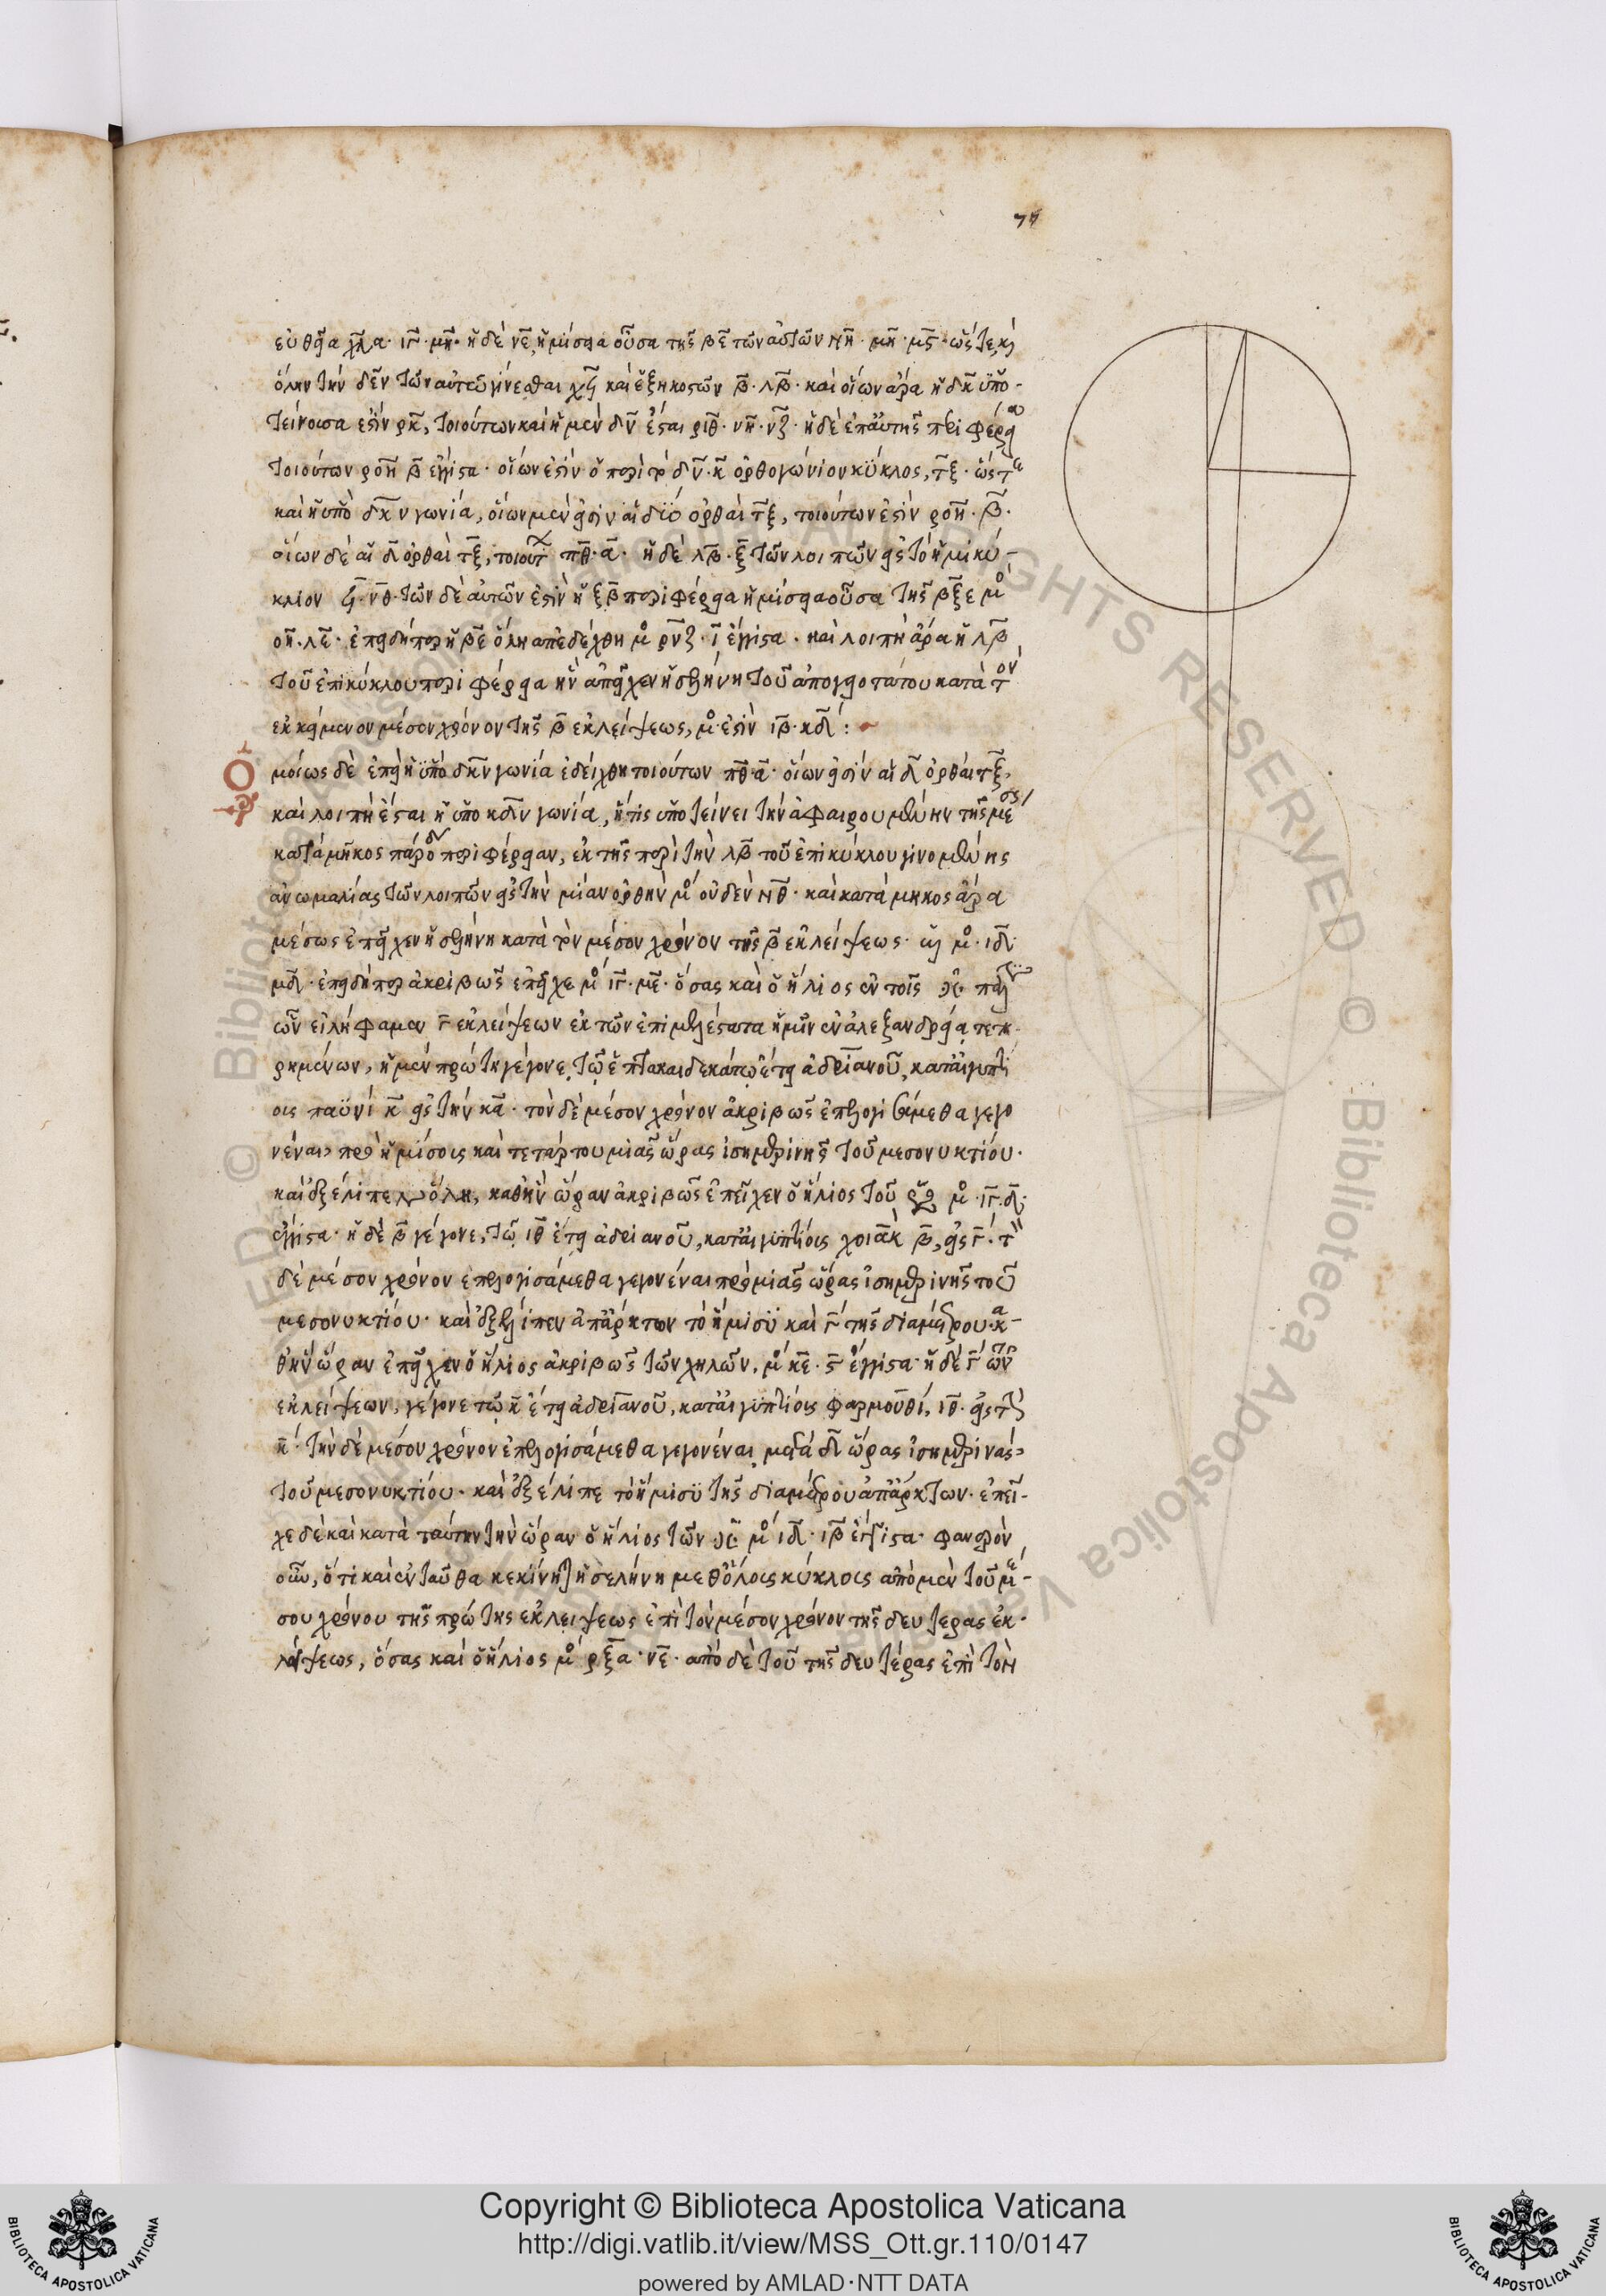 εὐθεῖα χλα· ιγ· μη· ἡ δὲ νε ἡμίσεια οὖσα τῆς βε τῶν αὐτῶν νη · μη · μϛ · ὥστε καὶ
ὅλην τὴν δεν τῶν αὐτῶν γίνεσθαι χϟ καὶ ἑξηκοστῶν β · λβ · καὶ οἵων ἄρα ἡ δκ ὑπο-
τείνουσα ἐστὶν ρκ, τοιούτων καὶ ἡ μὲν δν ἔσται ριθ · νη · νζ · ἡ δὲ ἐπ' αὐτῆς περιφέρεια
τοιούτων ροη β ἔγγιστα · οἵων ἐστὶν ὁ περὶ τὸ δν · κ ὀρθογώνιον κύκλος, τξ · ὥστε
καὶ ἡ ὑπὸ δκν γωνία, οἵων μέν εἰσιν αἱ δύο ὀρθαὶ τξ, τοιούτων ἐστὶν ροη · β ·
οἵων δὲ αἱ δ ὀρθαὶ τξ, τοιούτ πθ · α · ἡ δὲ λβ · ξ τῶν λοιπῶν εἰς τὸ ἡμικύ-
κλιον ϟ · νθ · τῶν δὲ αὐτῶν ἐστὶν ἡ ξβ περιφέρεια ἡμίσεια οὖσα τῆς βξε μο
οη · λε · ἐπειδήπερ ἡ βε ὅλη ἀπεδείχθη μο ρνζ · ι ἔγγιστα · καὶ λοιπὴ ἄρα ἡ λβ
τοῦ ἐπικύκλου περιφέρεια ἣν ἀπεῖχεν ἡ σελήνη τοῦ ἀπογειοτάτου κατὰ τὸν
ἐκκείμενον μέσον χρόνον τῆς β ἐκλείψεως, μο ἐστὶν ιβ · κδ :
Ὁμοίως δὲ ἐπεὶ ἡ ὑπὸ δκν γωνία ἐδείχθη τοιούτων πθ · α · οἵων εἰσὶν αἱ δ ὀρθαὶ τξ,
καὶ λοιπὴ ἔσται ἡ ὑπὸ κδν γωνία, ἥτις ὑποτείνει τὴν ἀφαιρουμένην τῆς μέσης
κατὰ μῆκος παρόδου περιφέρειαν, ἐκ τῆς περὶ τὴν λβ τοῦ ἐπικύκλου γινομένης
ἀνωμαλίας τῶν λοιπῶν εἰς τὴν μίαν ὀρθὴν μο οὐδὲν νθ · καὶ κατὰ μῆκος ἄρα
μέσως ἐπεῖχεν ἡ σελήνη κατὰ τὸν μέσον χρόνον τῆς β ἐκλείψεως · μο · ιδ
μδ · ἐπειδήπερ ἀκριβῶς ἐπεῖχε μο ιγ · με · ὅσας καὶ ὁ ἥλιος ἐν τοῖς πάλιν
ὧν εἰλήφαμεν γ ἐκλείψεων ἐκ τῶν ἐπιμελέστατα ἡμῖν ἐν ἀλεξανδρείᾳ τετη-
ρημένων, ἡ μὲν πρώτη γέγονε, τῷ ἑπτακαιδεκάτῳ ἔτει ἀδριανοῦ, κατ' αἰγυπτί
οις παϋνί κ εἰς τὴν κα · τὸν δὲ μέσον χρόνον ἀκριβῶς ἐπελογισάμεθα γεγο
νέναι, πρὸ ἡμίσους καὶ τετάρτου μιᾶς ὥρας ἰσημερινῆς τοῦ μεσονυκτίου ·
καὶ ἐξέλιπεν ὅλη, καθ' ἣν ὥραν ἀκριβῶς ἐπεῖχεν ὁ ἥλιος τοῦ μο · ιγ · δ ·
ἔγγιστα · ἡ δὲ β γέγονε, τῷ ιθ ἔτει ἀδριανοῦ, κατ' αἰγυπτίους χοιὰκ β, εἰς γ · τὸν
δὲ μέσον χρόνον ἐπελογισάμεθα γεγονέναι πρὸ μιᾶς ὥρας ἰσημερινῆς τοῦ
μεσονυκτίου · καὶ ἐξέλιπεν ἀπ' ἄρκτων τὸ ἥμισυ καὶ γ τῆς διαμέτρου · κα-
θ' ἣν ὥραν ἐπεῖχεν ὁ ἥλιος ἀκριβῶς τῶν χηλῶν, μο κε · ϛ ἔγγιστα · ἡ δὲ γ τῶν
ἐκλείψεων, γέγονε τῷ κ ἔτει ἀδριανοῦ, κατ' αἰγυπτίους φαρμουθί, ιθ · εἰς τὴν
κ · τὴν δὲ μέσον χρόνον ἐπελογισάμεθα γεγονέναι μετὰ δ ὥρας ἰσημερινὰς
τοῦ μεσονυκτίου · καὶ ἐξέλιπε τὸ ἥμισυ τῆς διαμέτρου ἀπ' ἄρκτων · ἐπεῖ-
χε δὲ καὶ κατὰ ταύτην τὴν ὥραν ὁ ἥλιος τῶν μο ιδ · ιβ ἔγγιστα · φανερὸν
οὖν, ὅτι καὶ ἐνταῦθα κεκίνηται ἡ σελήνη μεθ' ὅλους κύκλους ἀπὸ μὲν τοῦ μέ-
σου χρόνου τῆς πρώτης ἐκλείψεως ἐπὶ τὸν μέσον χρόνον τῆς δευτέρας ἐκ-
λείψεως, ὅσας καὶ ὁ ἥλιος μο ρξα · νε · ἀπὸ δὲ τοῦ τῆς δευτέρας ἐπὶ τὸν
Copyright © Biblioteca Apostolica Vaticana
http://digi.vatlib.it/view/MSS_Ott.gr.110/0147
powered by AMLAD·NTT DATA